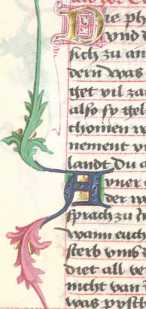 Die ph
vnd d
sich zu an
dern was
get vil za
also sy gel
thomen w
nement v
landt Du a
Auer e
der w
sprach zu d
wann euch
sterb vmb d
diet all be
nicht han
was posth